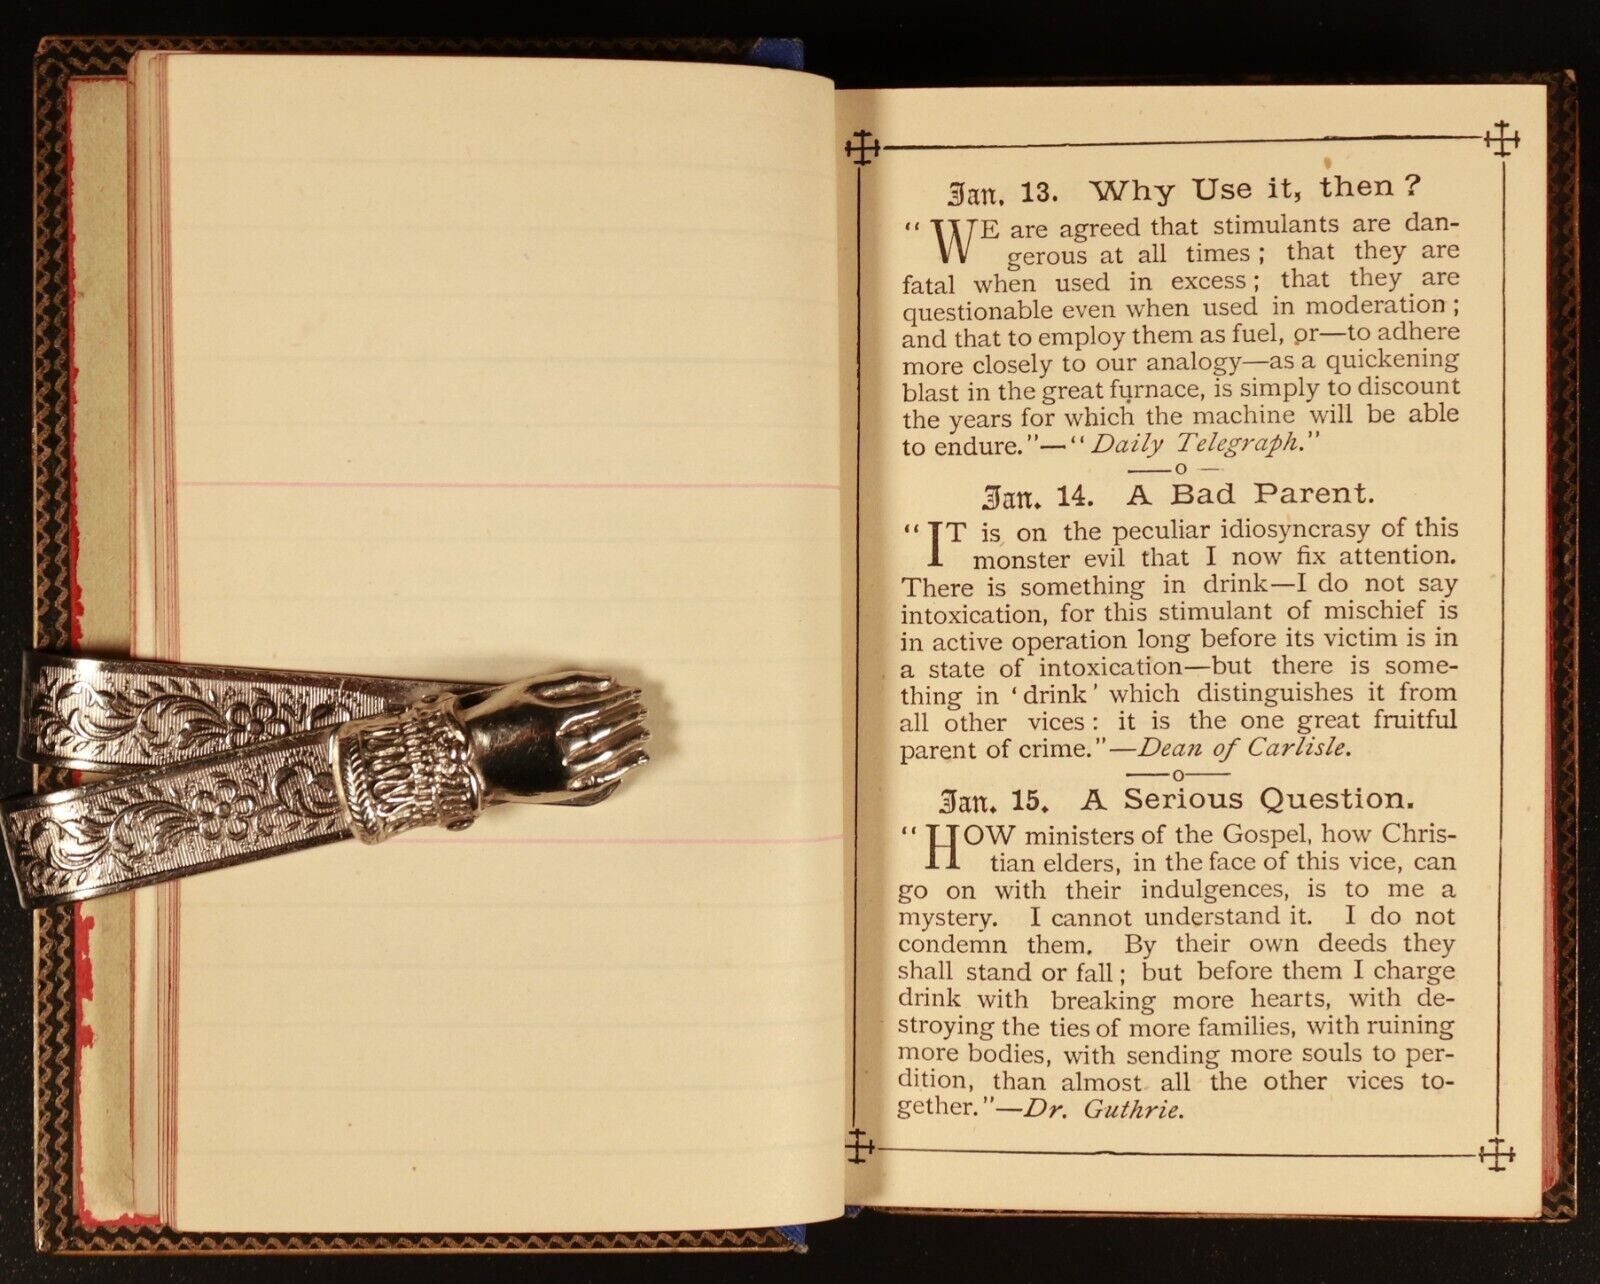 Jan. 13. Why Use it, then?
“WE are agreed that stimulants are dan-
gerous at all times; that they are
fatal when used in excess; that they are
questionable even when used in moderation;
and that to employ them as fuel, or—to adhere
more closely to our analogy—as a quickening
blast in the great furnace, is simply to discount
the years for which the machine will be able
to endure.”—“Daily Telegraph.”
Jan. 14. A Bad Parent.
“IT is on the peculiar idiosyncrasy of this
monster evil that I now fix attention.
There is something in drink—I do not say
intoxication, for this stimulant of mischief is
in active operation long before its victim is in
a state of intoxication—but there is some-
thing in ‘drink’ which distinguishes it from
all other vices: it is the one great fruitful
parent of crime.”—Dean of Carlisle.
Jan. 15. A Serious Question.
“HOW ministers of the Gospel, how Chris-
tian elders, in the face of this vice, can
go on with their indulgences, is to me a
mystery. I cannot understand it. I do not
condemn them. By their own deeds they
shall stand or fall; but before them I charge
drink with breaking more hearts, with de-
stroying the ties of more families, with ruining
more bodies, with sending more souls to per-
dition, than almost all the other vices to-
gether.”—Dr. Guthrie.